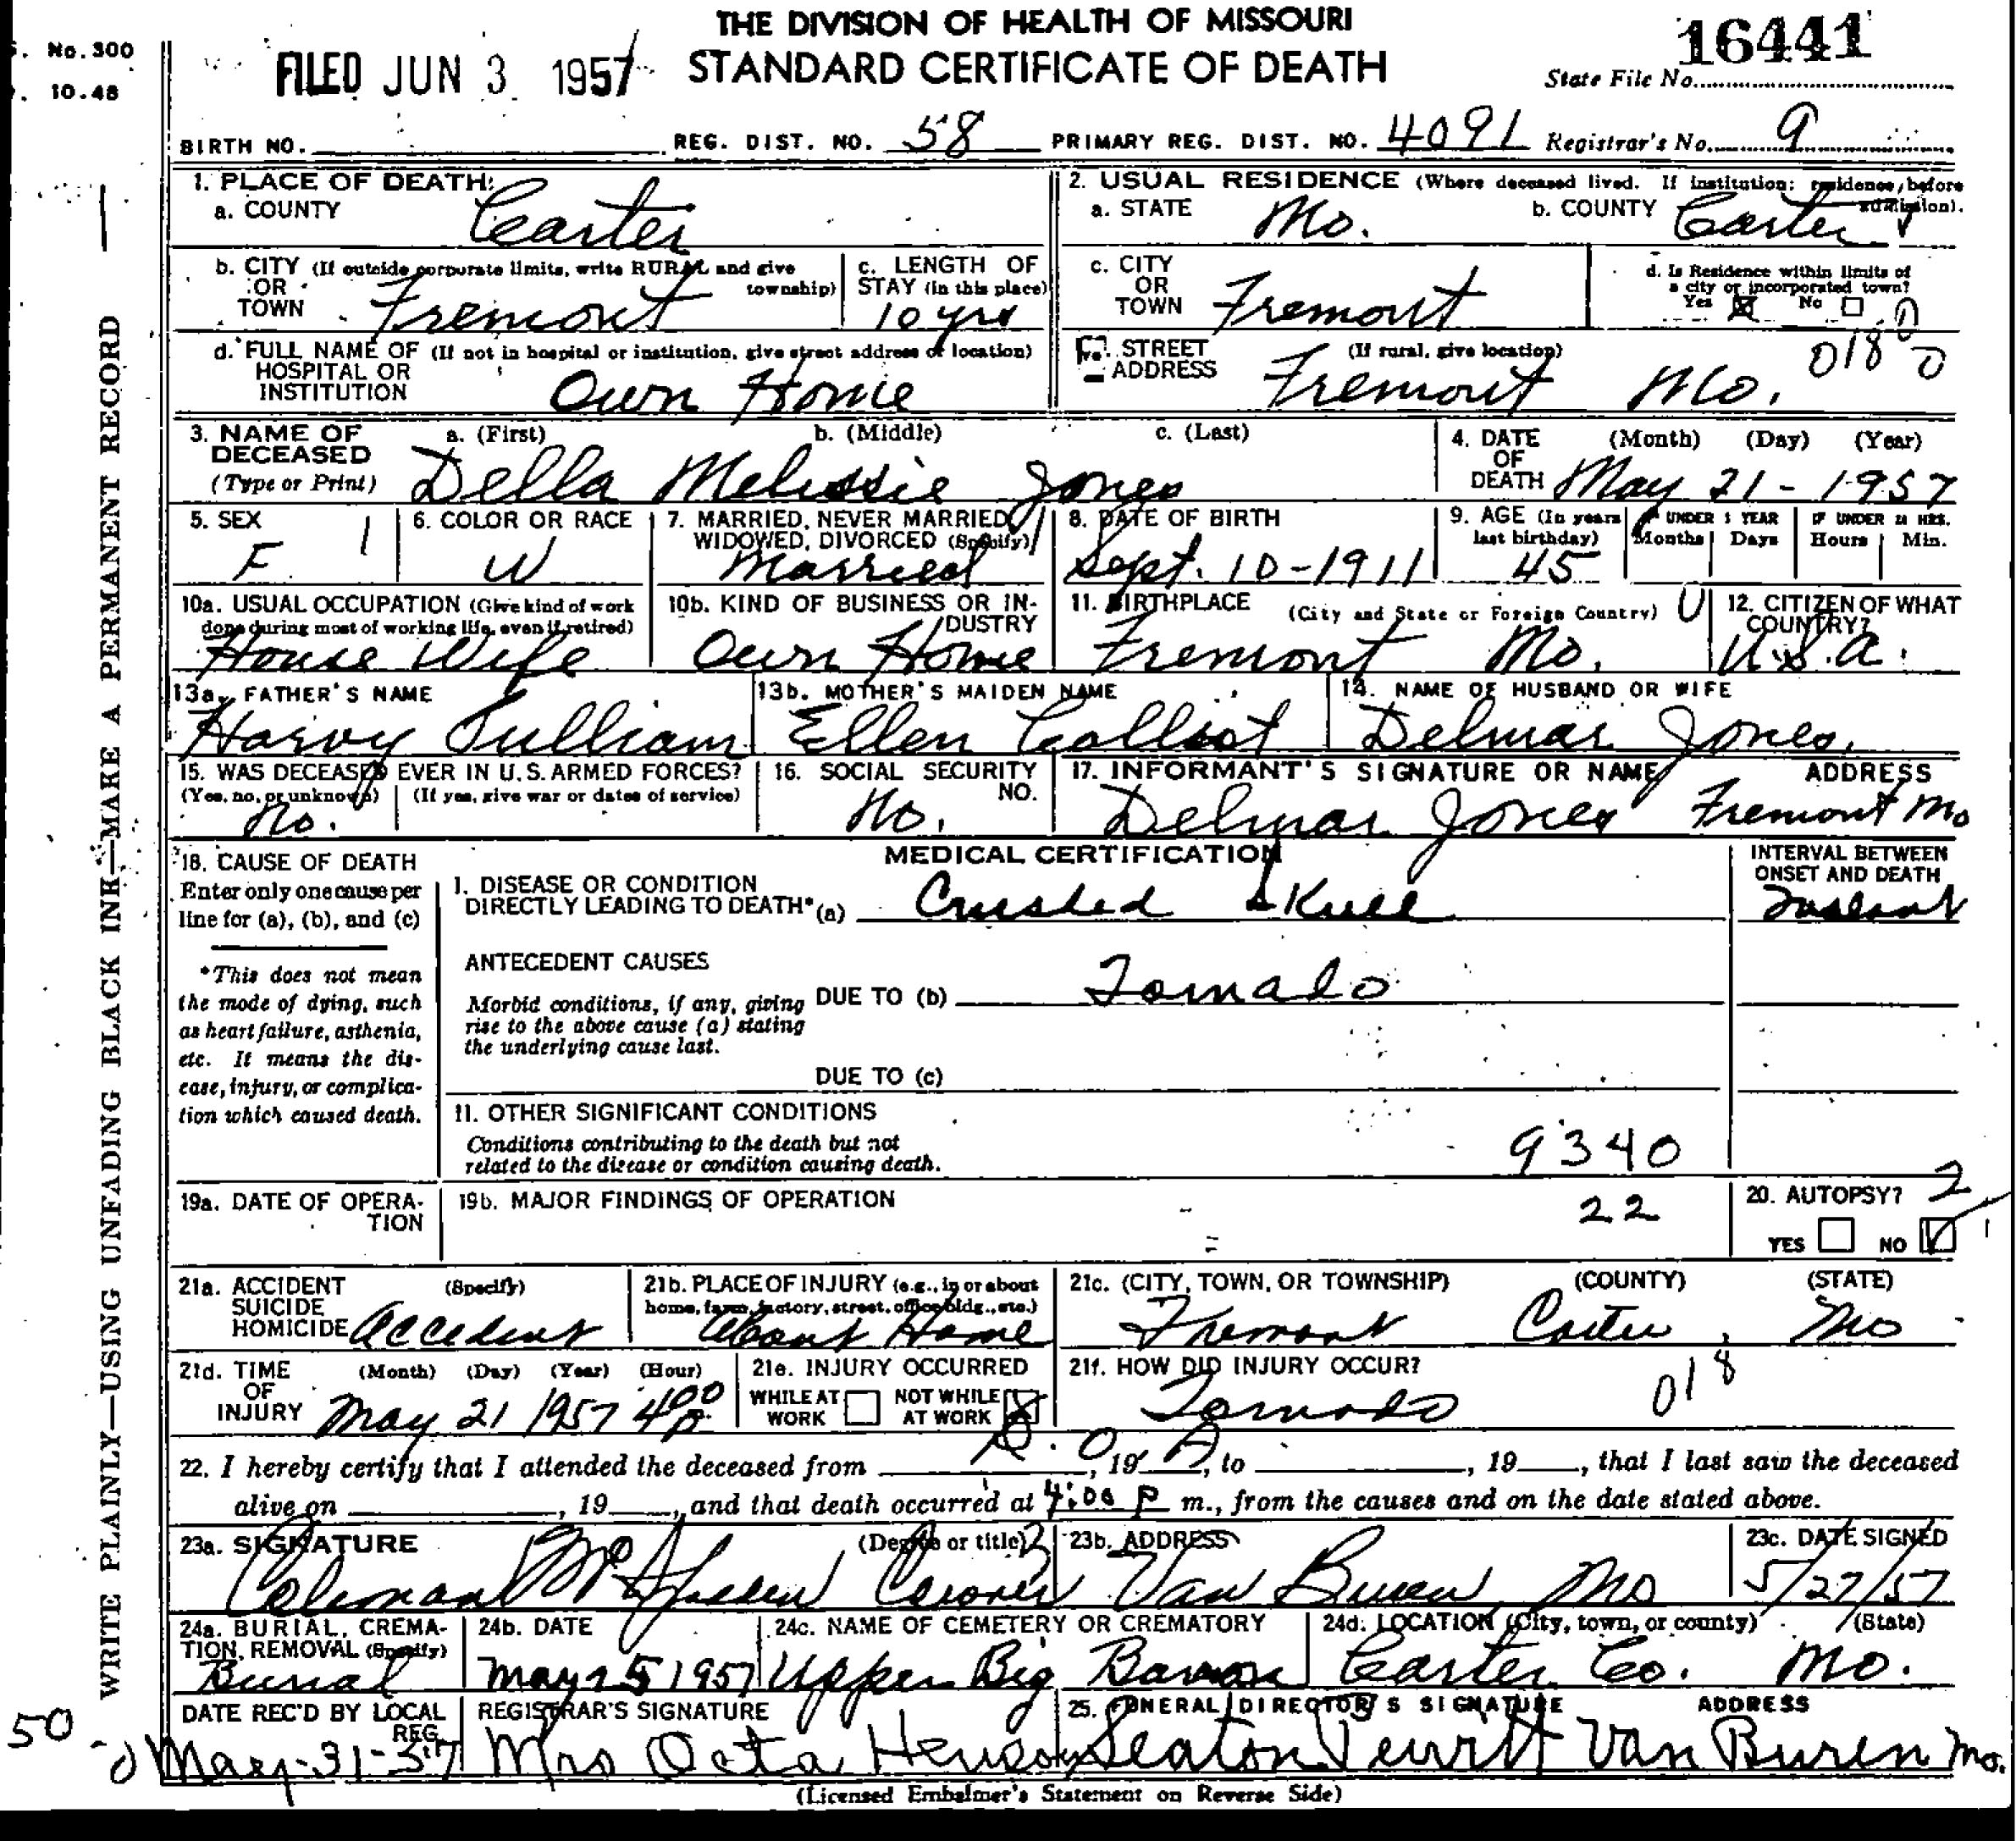 THE DIVISION OF HEALTH OF MISSOURI
STANDARD CERTIFICATE OF DEATH
No. 300
10.48
FILED JUN 3 1957
16441
State File No.
BIRTH NO. REG. DIST. NO. 58 PRIMARY REG. DIST. NO. 4091 Registrar's No. 9
WRITE PLAINLY—USING UNFADING BLACK INK—MAKE A PERMANENT RECORD
1. PLACE OF DEATH:
a. COUNTY Carter
2. USUAL RESIDENCE (Where deceased lived. If institution: residence before admission).
a. STATE Mo. b. COUNTY Carter
b. CITY (If outside corporate limits, write RURAL and give township)
OR
TOWN Fremont
c. LENGTH OF
STAY (in this place)
10 yrs
c. CITY
OR
TOWN Fremont
d. Is Residence within limits of
a city or incorporated town?
Yes ☒ No ☐
d. FULL NAME OF (If not in hospital or institution, give street address or location)
HOSPITAL OR
INSTITUTION Own Home
STREET (If rural, give location)
ADDRESS Fremont Mo.
018 0
0
3. NAME OF
DECEASED
(Type or Print)
a. (First) b. (Middle) c. (Last)
Della Melissie Jones
4. DATE (Month) (Day) (Year)
OF
DEATH May 21 - 1957
5. SEX
F 1
6. COLOR OR RACE
W
7. MARRIED, NEVER MARRIED,
WIDOWED, DIVORCED (Specify) 1
Married
8. DATE OF BIRTH
Sept. 10-1911
9. AGE (In years
last birthday)
45
IF UNDER 1 YEAR
Months Days
IF UNDER 24 HRS.
Hours Min.
10a. USUAL OCCUPATION (Give kind of work
done during most of working life, even if retired)
House Wife
10b. KIND OF BUSINESS OR INDUSTRY
Own Home
11. BIRTHPLACE (City and State or Foreign Country) U
Fremont Mo.
12. CITIZEN OF WHAT
COUNTRY?
U.S.A.
13a. FATHER'S NAME
Harvy Pulliam
13b. MOTHER'S MAIDEN NAME
Ellen
14. NAME OF HUSBAND OR WIFE
Delmar Jones
15. WAS DECEASED EVER IN U.S. ARMED FORCES?
(Yes, no, or unknown) (If yes, give war or dates of service)
No.
16. SOCIAL SECURITY
NO.
No.
17. INFORMANT'S SIGNATURE OR NAME ADDRESS
Delmar Jones Fremont Mo
18. CAUSE OF DEATH
Enter only one cause per
line for (a), (b), and (c)
*This does not mean
the mode of dying, such
as heart failure, asthenia,
etc. It means the dis-
ease, injury, or complica-
tion which caused death.
MEDICAL CERTIFICATION
I. DISEASE OR CONDITION
DIRECTLY LEADING TO DEATH* (a) Crushed Skull
INTERVAL BETWEEN
ONSET AND DEATH
Instant
ANTECEDENT CAUSES
Morbid conditions, if any, giving
rise to the above cause (a) stating
the underlying cause last.
DUE TO (b) Tornado
DUE TO (c)
11. OTHER SIGNIFICANT CONDITIONS
Conditions contributing to the death but not
related to the disease or condition causing death.
9340
19a. DATE OF OPERA-
TION
19b. MAJOR FINDINGS OF OPERATION
22
20. AUTOPSY? 2
YES ☐ NO ☑
21a. ACCIDENT (Specify)
SUICIDE
HOMICIDE Accident
21b. PLACE OF INJURY (e.g., in or about
home, farm, factory, street, office bldg., etc.)
About Home
21c. (CITY, TOWN, OR TOWNSHIP) (COUNTY) (STATE)
Fremont Carter Mo
21d. TIME (Month) (Day) (Year) (Hour)
OF
INJURY May 21 1957 4:00 P.
21e. INJURY OCCURRED
WHILE AT WORK ☐ NOT WHILE AT WORK ☒
21f. HOW DID INJURY OCCUR?
Tornado
018
22. I hereby certify that I attended the deceased from D.O., 19 A, to , 19 , that I last saw the deceased
alive on , 19 , and that death occurred at 4:00 P m., from the causes and on the date stated above.
23a. SIGNATURE (Degree or title)
Coleman McSpadden Coroner
23b. ADDRESS
Van Buren, Mo
23c. DATE SIGNED
5/27/57
24a. BURIAL, CREMA-
TION, REMOVAL (Specify)
Burial
24b. DATE
May 25 1957
24c. NAME OF CEMETERY OR CREMATORY
Upper Big Barren
24d. LOCATION (City, town, or county) (State)
Carter Co. Mo.
DATE REC'D BY LOCAL
REG.
May-31-57
REGISTRAR'S SIGNATURE
Mrs Octa Henson
25. FUNERAL DIRECTOR'S SIGNATURE ADDRESS
Seaton Van Buren Mo.
50
(Licensed Embalmer's Statement on Reverse Side)